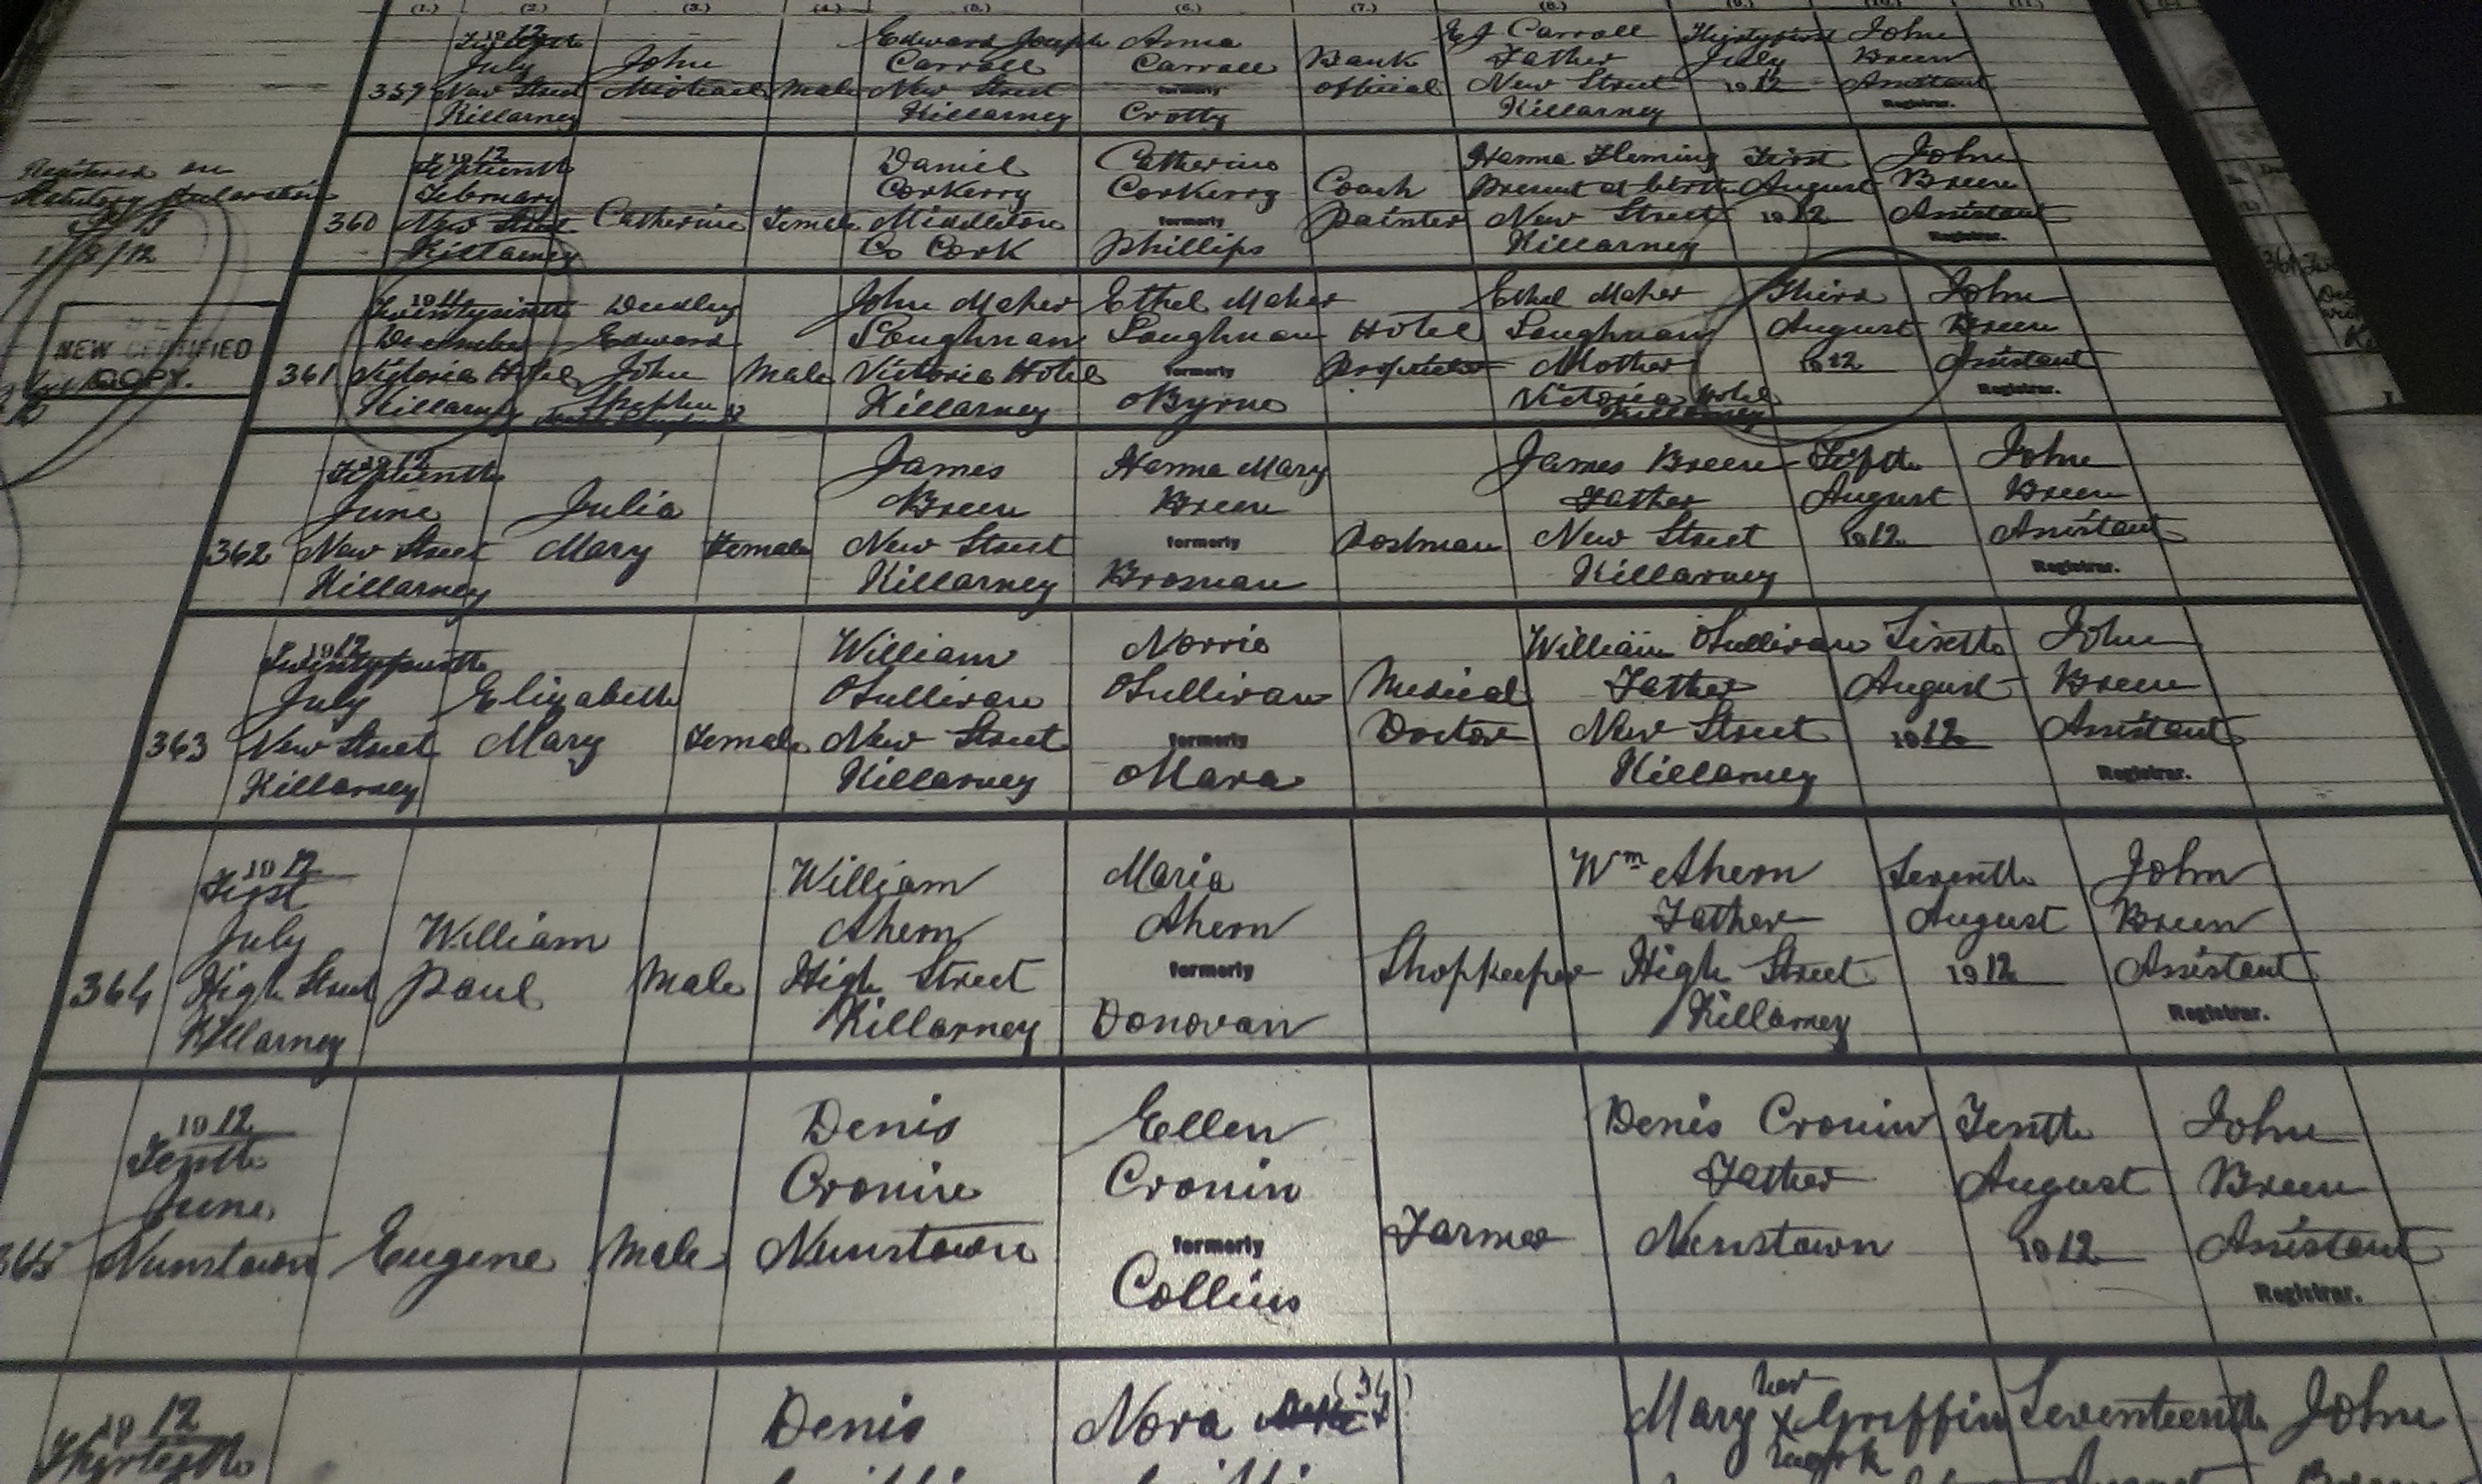 (1.) (2.) (3.) (4.) (5.) (6.) (7.) (8.) (9.) (10.) (11.)
359
1912
July
New Street
Killarney
John
Michael
Male
Edward Joseph
Carroll
New Street
Killarney
Anna
Carroll
formerly
Crotty
Bank
Official
E J Carroll
Father
New Street
Killarney
Thirtyfirst
July
1912
John
Breen
Assistant
Registrar.
Registered on
Statutory Declaration
1/8/12
360
1912
February
New Street
Killarney
Catherine
Female
Daniel
Corkerry
Middleton
Co Cork
Catherine
Corkerry
formerly
Phillips
Coach
Painter
Hanna Fleming
Present at birth
New Street
Killarney
First
August
1912
John
Breen
Assistant
Registrar.
NEW CERTIFIED
COPY.
361
1911
December
Victoria Hotel
Killarney
Dudley
Edward
John
Stephen
Male
John Maher
Loughnan
Victoria Hotel
Killarney
Ethel Maher
Loughnan
formerly
OByrne
Hotel
Proprietor
Ethel Maher
Loughnan
Mother
Victoria Hotel
Killarney
Third
August
1912
John
Breen
Assistant
Registrar.
362
1912
June
New Street
Killarney
Julia
Mary
Female
James
Breen
New Street
Killarney
Hanna Mary
Breen
formerly
Brosnan
Postman
James Breen
Father
New Street
Killarney
Fifth
August
1912
John
Breen
Assistant
Registrar.
363
1912
Twentyfourth
July
New Street
Killarney
Elizabeth
Mary
Female
William
OSullivan
New Street
Killarney
Norrie
OSullivan
formerly
OMara
Medical
Doctor
William OSullivan
Father
New Street
Killarney
Sixth
August
1912
John
Breen
Assistant
Registrar.
364
1912
First
July
High Street
Killarney
William
Paul
Male
William
Ahern
High Street
Killarney
Maria
Ahern
formerly
Donovan
Shopkeeper
Wm Ahern
Father
High Street
Killarney
Seventh
August
1912
John
Breen
Assistant
Registrar.
365
1912
Tenth
June
Nunstown
Eugene
Male
Denis
Cronin
Nunstown
Ellen
Cronin
formerly
Collins
Farmer
Denis Cronin
Father
Nunstown
Tenth
August
1912
John
Breen
Assistant
Registrar.
1912
Thirtieth
Denis
Nora
her
Mary X Griffin
mark
Seventeenth
August
John
Breen